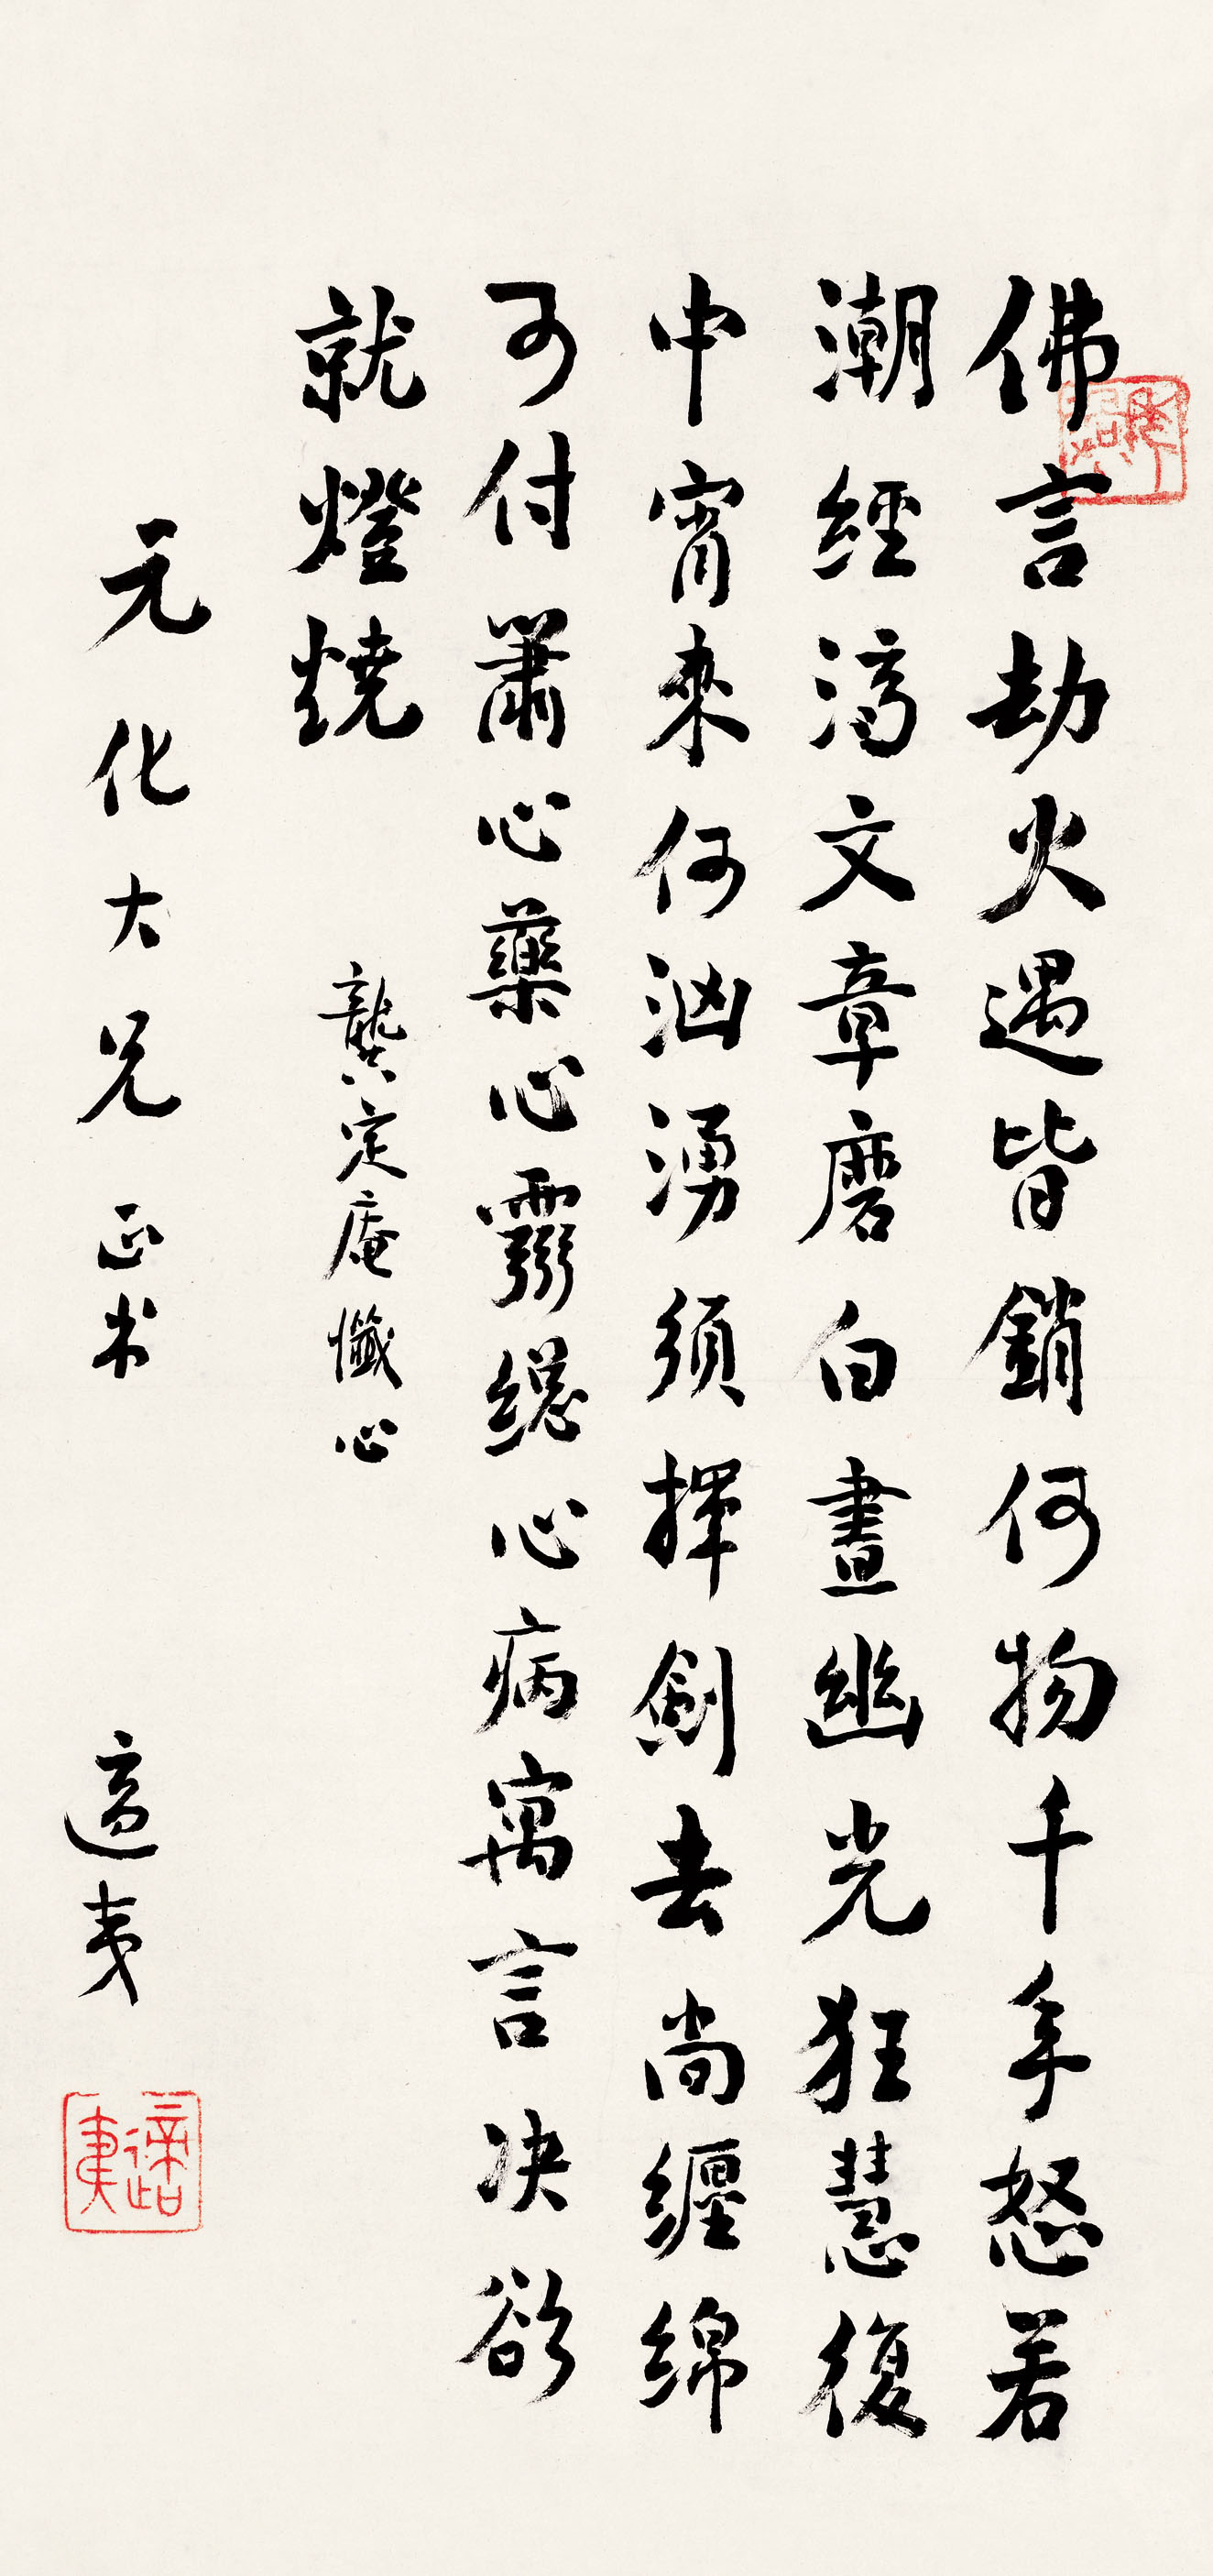 佛言劫火遇皆銷何物千年怒若
潮經濟文章磨白晝幽光狂慧復
中宵來何洶湧須揮劍去尚纏綿
可付簫心藥心靈總心病寓言決欲
就燈燒
龔定庵懺心
元化大兄正书
適夷
適夷